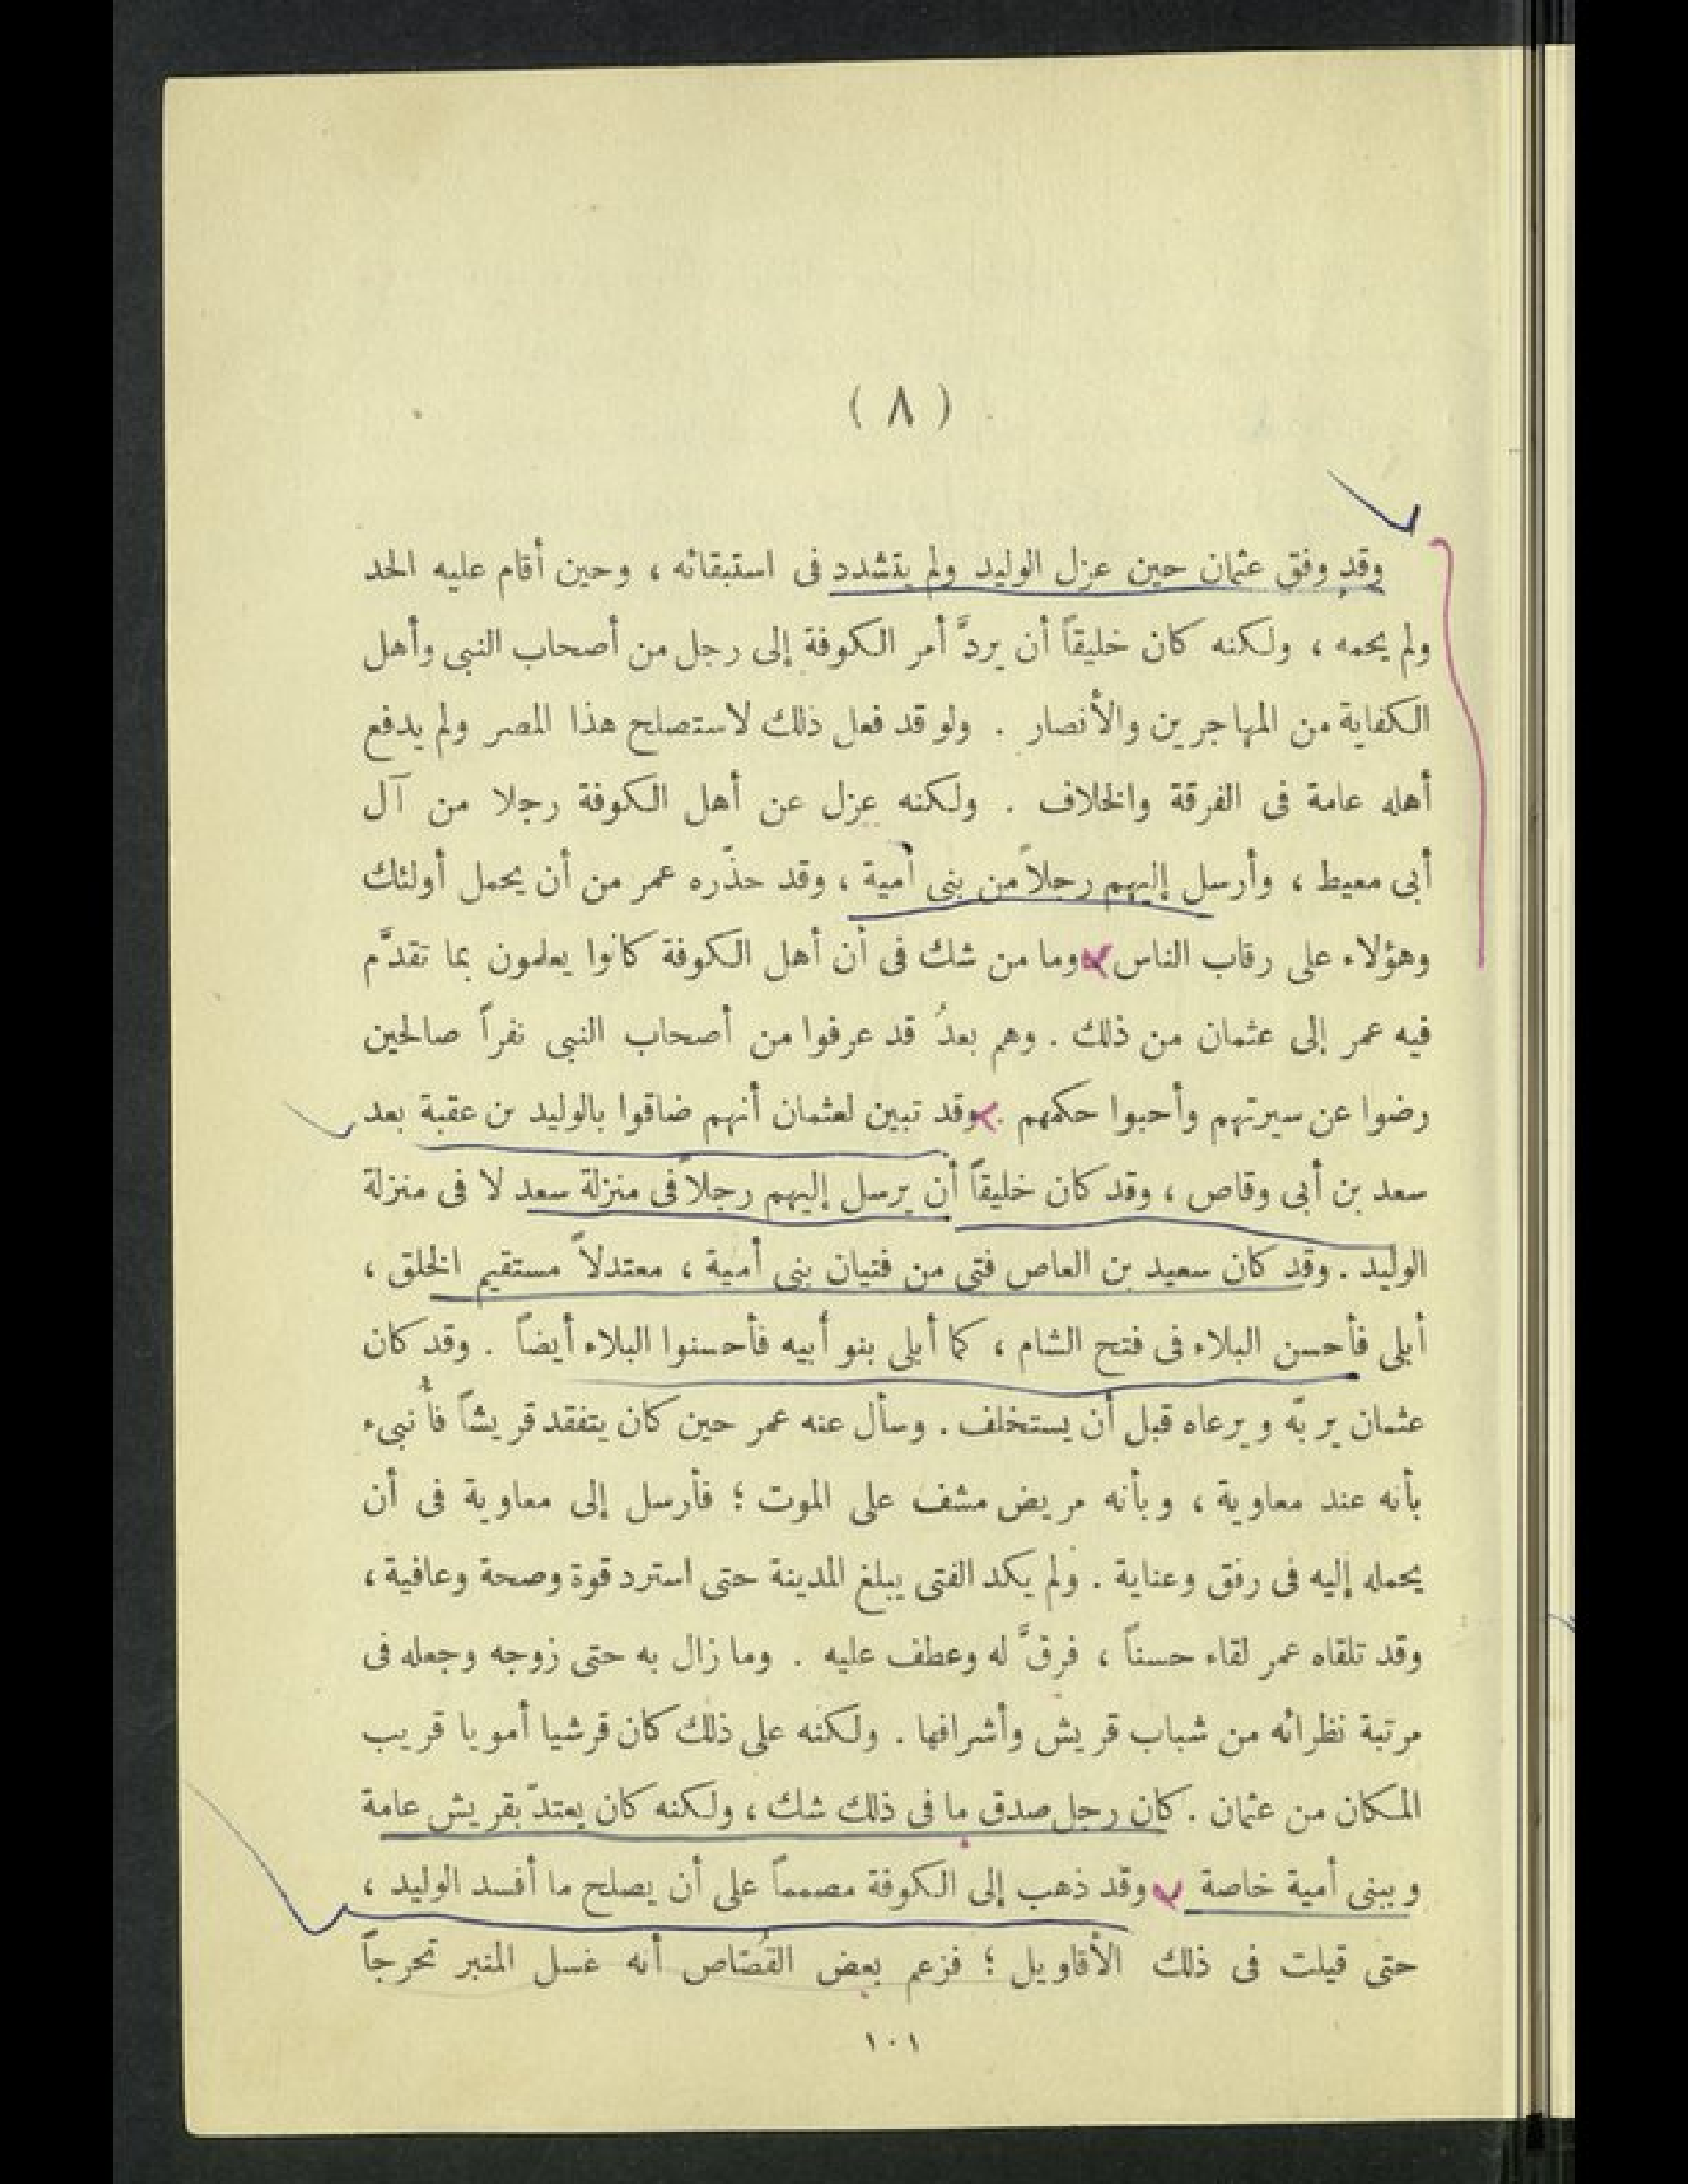 ( ٨ )
وقد وفق عثمان حين عزل الوليد ولم يتشدد فى استبقائه ، وحين أقام عليه الحد
ولم يحمه ، ولكنه كان خليقاً أن يردَّ أمر الكوفة إلى رجل من أصحاب النبى وأهل
الكفاية من المهاجرين والأنصار . ولو قد فعل ذلك لاستصلح هذا المصر ولم يدفع
أهله عامة فى الفرقة والخلاف . ولكنه عزل عن أهل الكوفة رجلا من آل
أبى معيط ، وأرسل إليهم رجلاً من بنى أمية ، وقد حذّره عمر من أن يحمل أولئك
وهؤلاء على رقاب الناس . وما من شك فى أن أهل الكوفة كانوا يعلمون بما تقدَّم
فيه عمر إلى عثمان من ذلك . وهم بعدُ قد عرفوا من أصحاب النبى نفراً صالحين
رضوا عن سيرتهم وأحبوا حكمهم . وقد تبين لعثمان أنهم ضاقوا بالوليد بن عقبة بعد
سعد بن أبى وقاص ، وقد كان خليقاً أن يرسل إليهم رجلاً فى منزلة سعد لا فى منزلة
الوليد . وقد كان سعيد بن العاص فتى من فتيان بنى أمية ، معتدلاً مستقيم الخلق ،
أبلى فأحسن البلاء فى فتح الشام ، كما أبلى بنو أبيه فأحسنوا البلاء أيضاً . وقد كان
عثمان يربّه ويرعاه قبل أن يستخلف . وسأل عنه عمر حين كان يتفقد قريشاً فأُنبىء
بأنه عند معاوية ، وبأنه مريض مشف على الموت ؛ فأرسل إلى معاوية فى أن
يحمله إليه فى رفق وعناية . ولم يكد الفتى يبلغ المدينة حتى استرد قوة وصحة وعافية ،
وقد تلقاه عمر لقاء حسناً ، فرقَّ له وعطف عليه . وما زال به حتى زوجه وجعله فى
مرتبة نظرائه من شباب قريش وأشرافها . ولكنه على ذلك كان قرشيا أمويا قريب
المكان من عثمان . كان رجل صدق ما فى ذلك شك ، ولكنه كان يعتدّ بقريش عامة
وببنى أمية خاصة . وقد ذهب إلى الكوفة مصمماً على أن يصلح ما أفسد الوليد ،
حتى قيلت فى ذلك الأقاويل ؛ فزعم بعض القُصّاص أنه غسل المنبر تحرجاً
١٠١